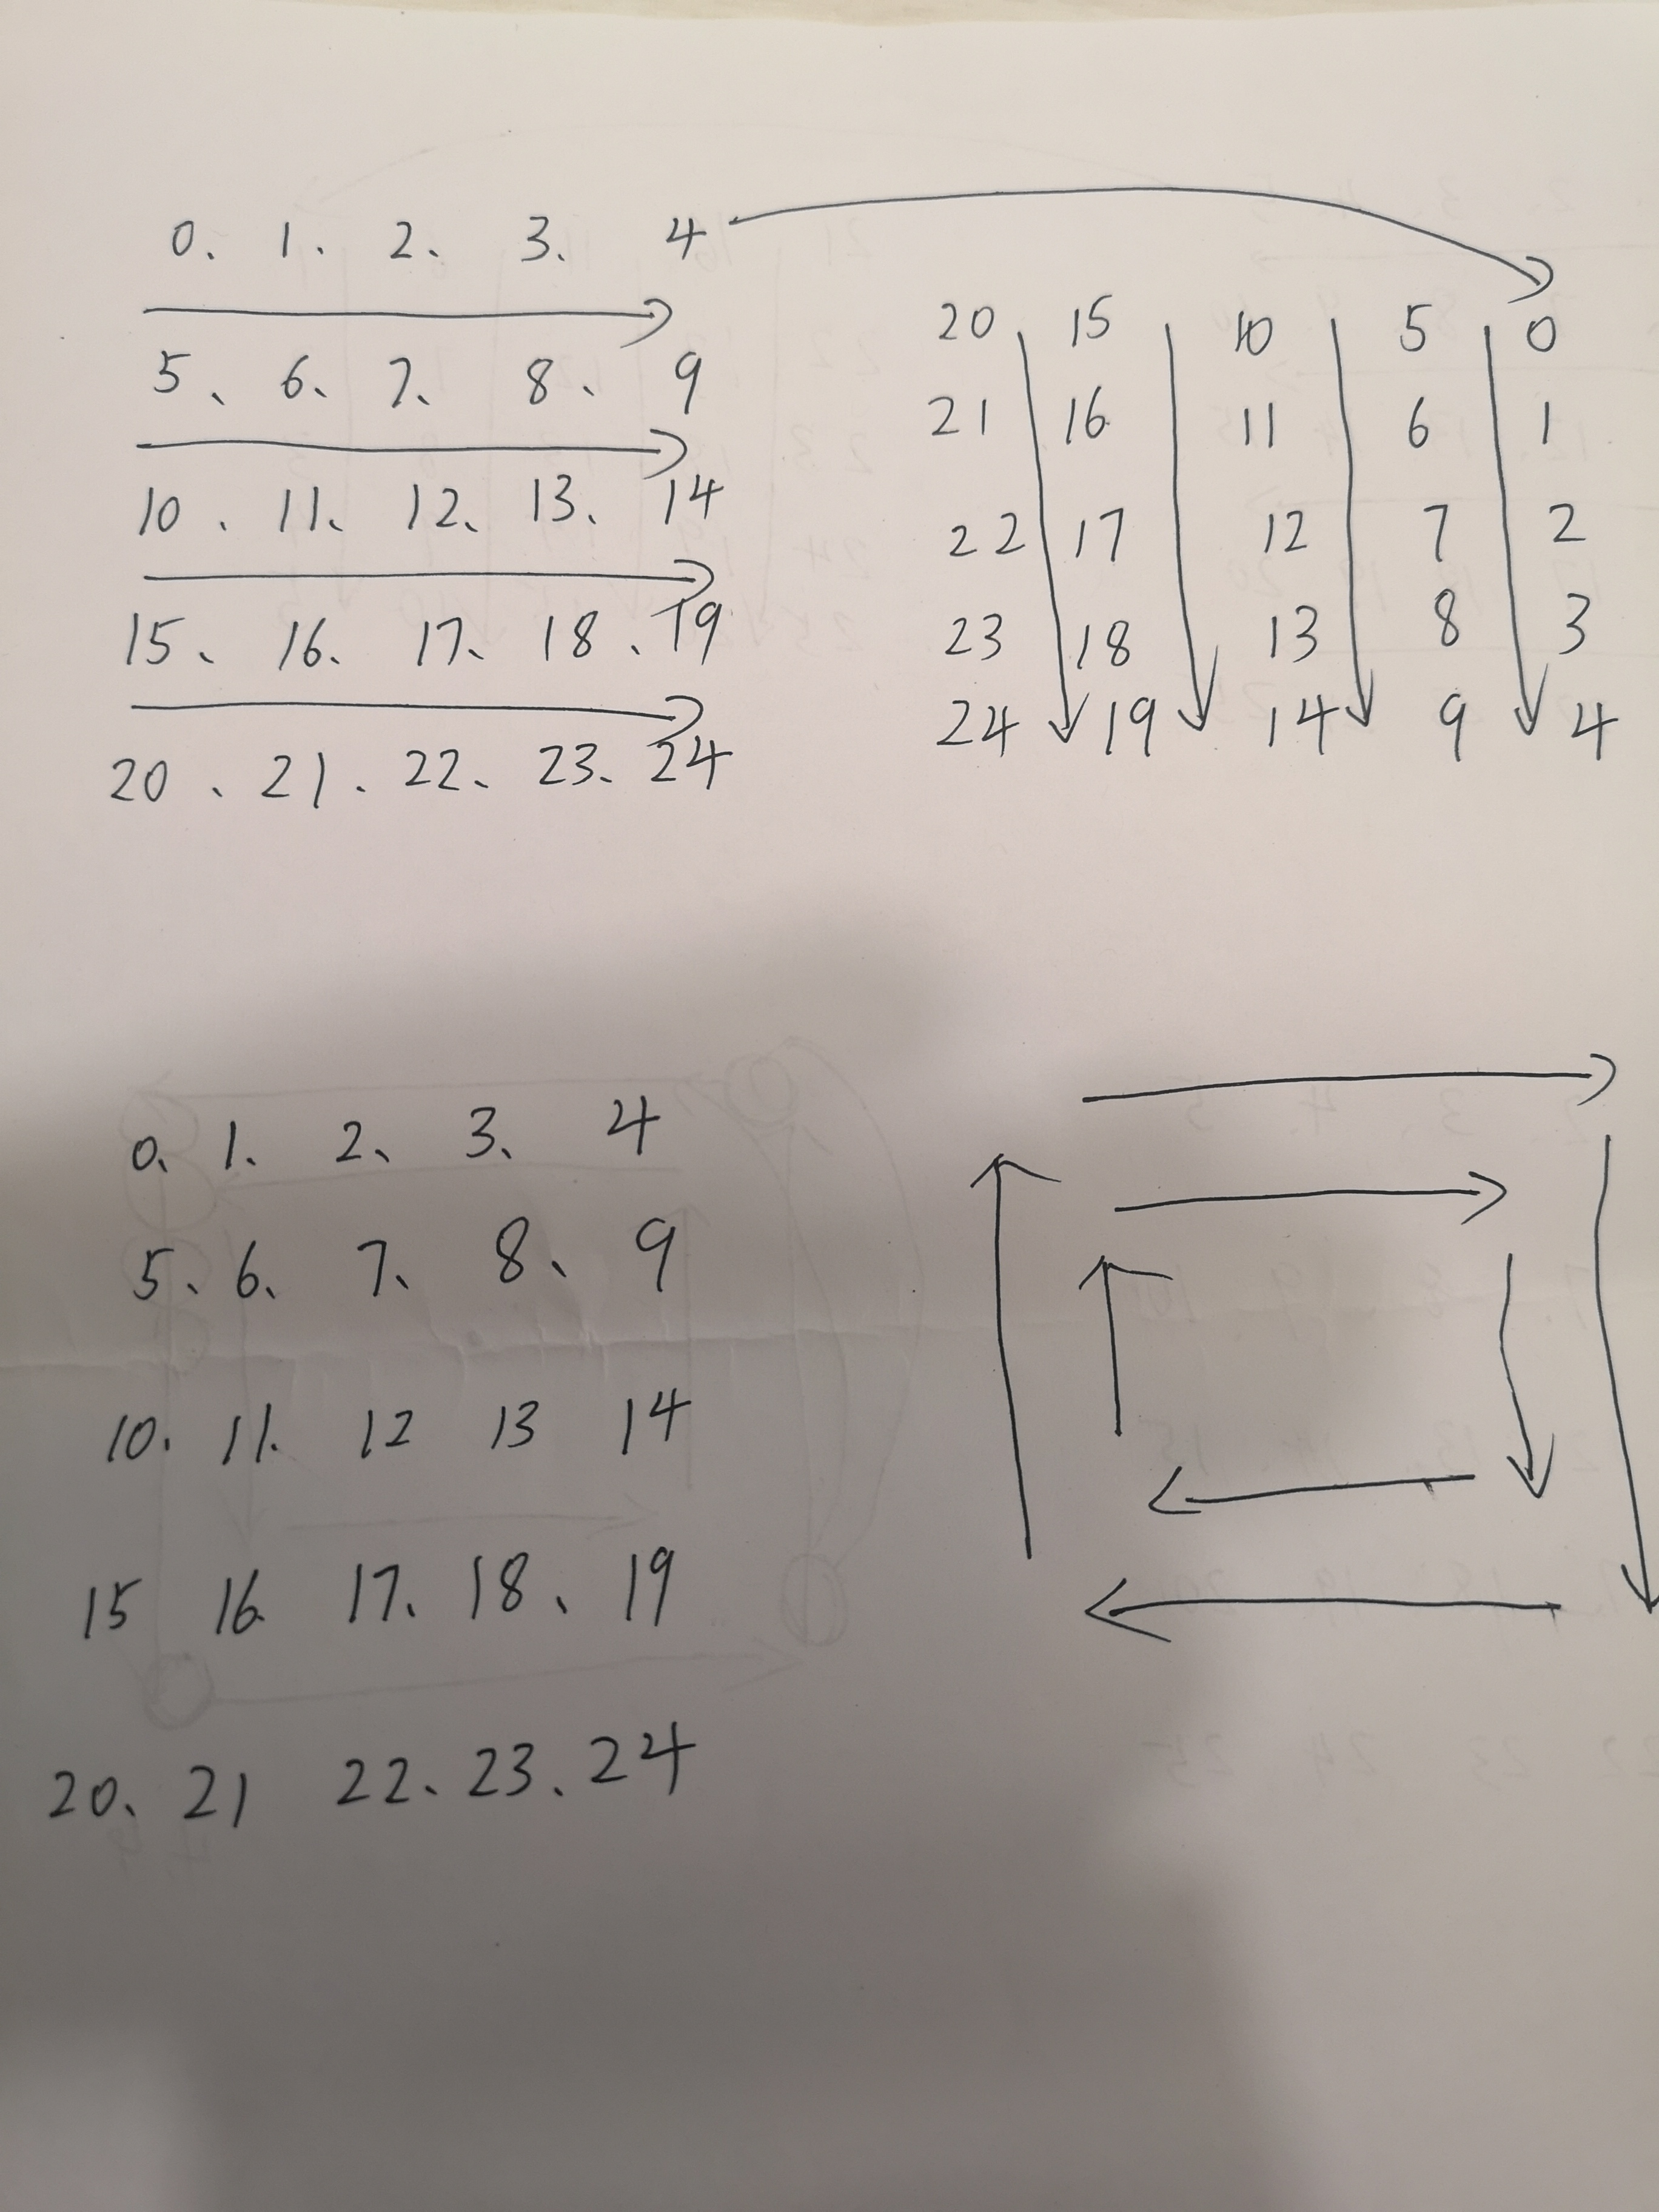 0、1、2、3、4
5、6、7、8、9
10、11、12、13、14
15、16、17、18、19
20、21、22、23、24
20 15 10 5 0
21 16 11 6 1
22 17 12 7 2
23 18 13 8 3
24 19 14 9 4
0、1、2、3、4
5、6、7、8、9
10、11、12 13 14
15 16、17、18、19
20、21 22、23、24